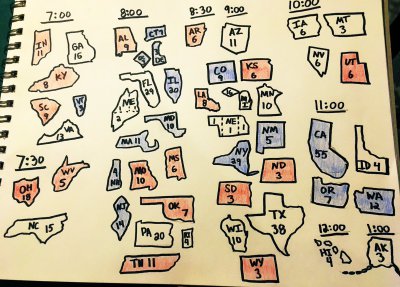 7:00
IN
11
GA
16
KY
8
SC
9
VT
3
VA
13
7:30
OH
18
WV
5
NC 15
8:00
AL
9
CT 7
DE
ME
2
FL
29
IL
20
MD
10
MA 11
NH
4
MO
10
MS
6
NJ
14
OK
7
PA 20
RI
4
TN 11
8:30
AR
6
9:00
AZ
11
CO
9
KS
6
LA
8
MN
10
NE
1
1
NM
5
NY
29
ND
3
SD
3
TX
38
WI
10
WY
3
10:00
IA
6
MT
3
NV
6
UT
6
11:00
CA
55
ID 4
OR
7
WA
12
12:00
HI
4
1:00
AK
3